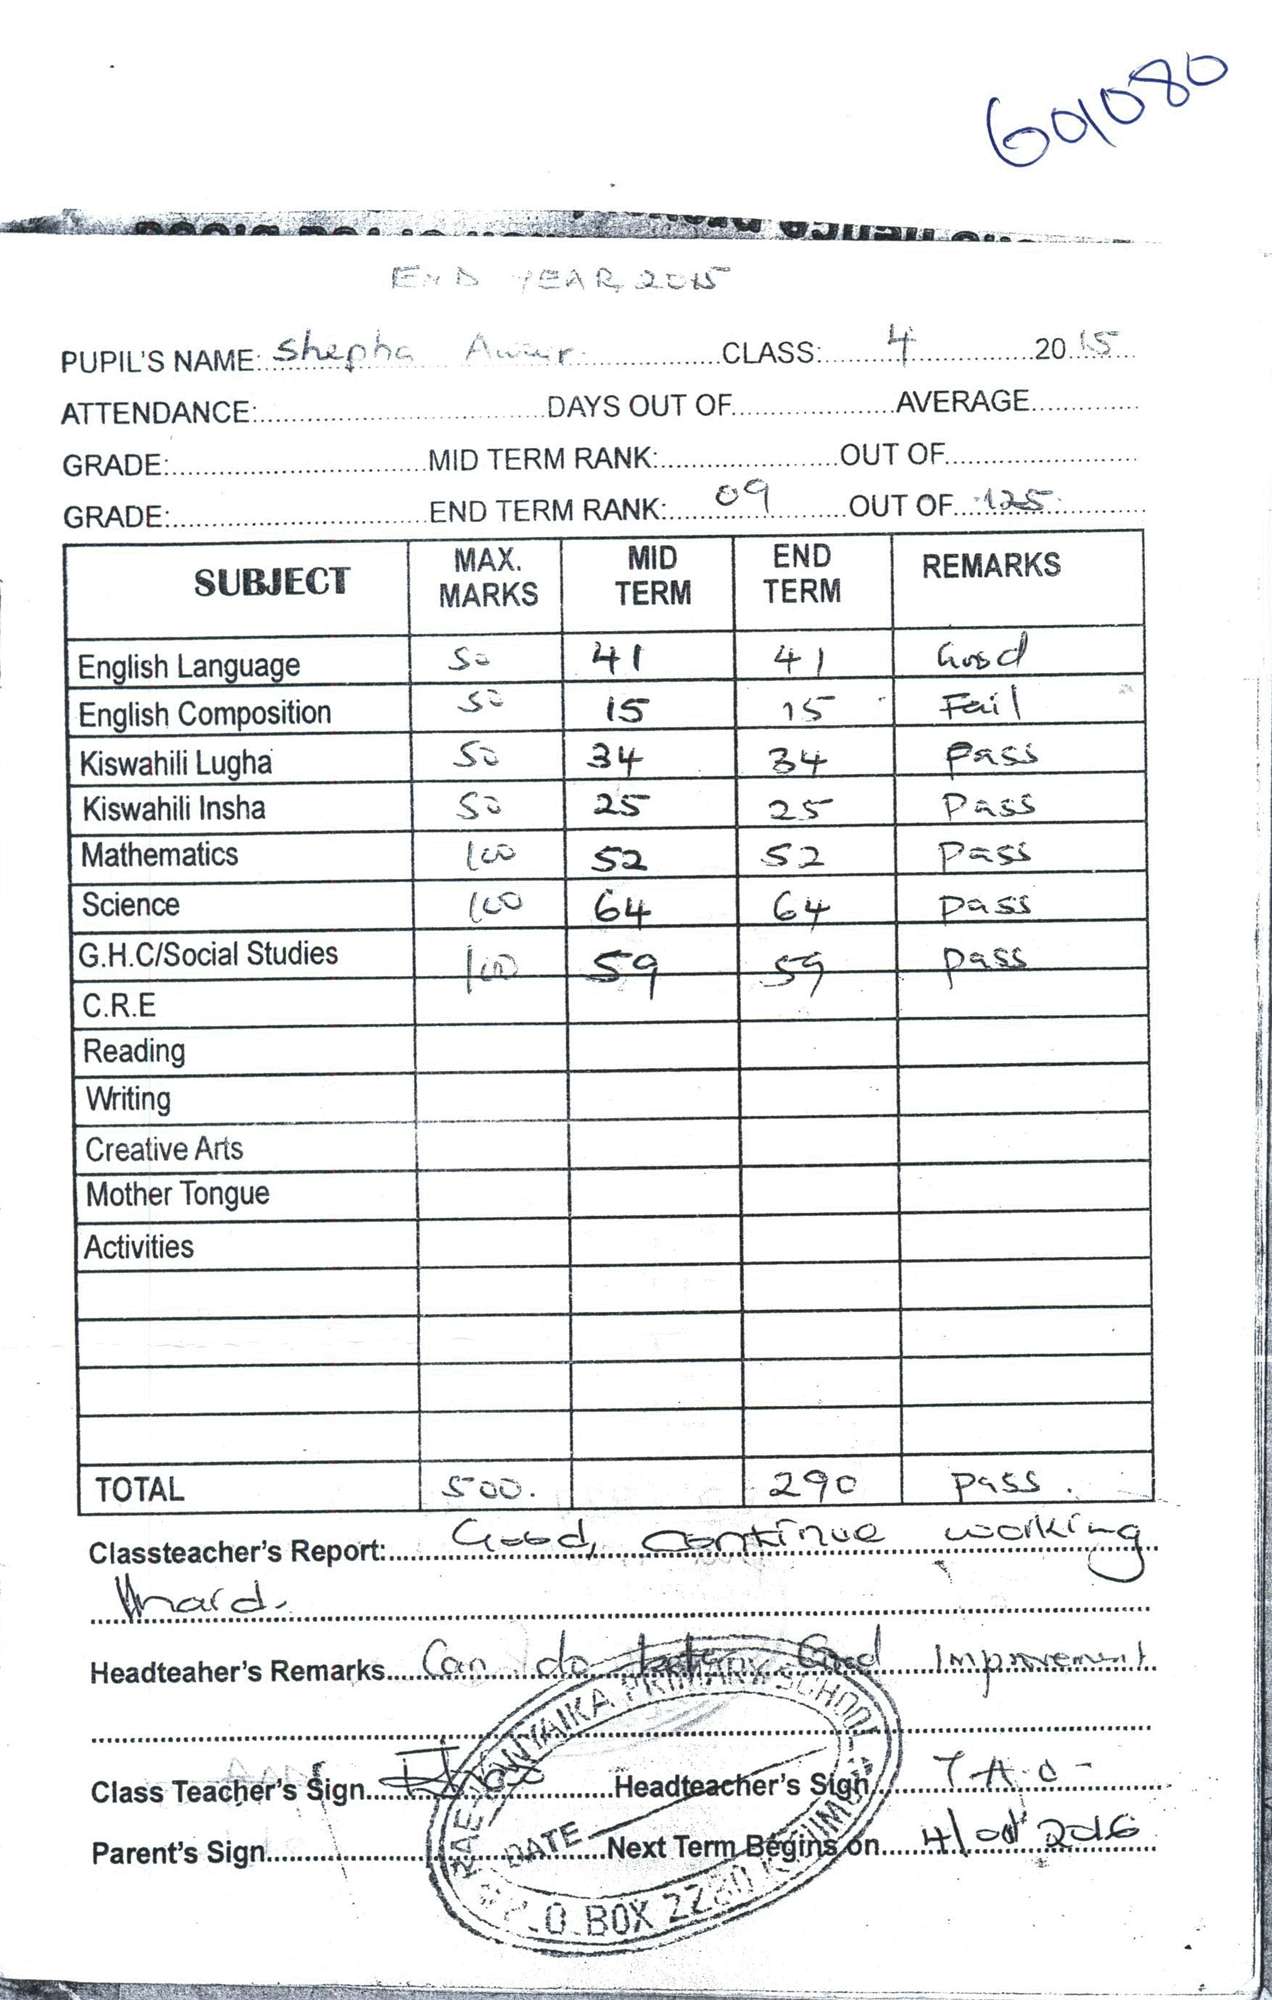 601080
END YEAR 2015
PUPIL'S NAME: Shepha CLASS: 4 2015
ATTENDANCE: DAYS OUT OF AVERAGE
GRADE: MID TERM RANK: OUT OF
GRADE: END TERM RANK: 09 OUT OF 125
SUBJECT MAX. MARKS MID TERM END TERM REMARKS
English Language 50 41 41 Good
English Composition 50 15 15 Fail
Kiswahili Lugha 50 34 34 Pass
Kiswahili Insha 50 25 25 Pass
Mathematics 100 52 52 Pass
Science 100 64 64 Pass
G.H.C/Social Studies 100 59 59 Pass
C.R.E
Reading
Writing
Creative Arts
Mother Tongue
Activities
TOTAL 500. 290 Pass.
Classteacher's Report: Good, continue working
hard.
Headteaher's Remarks Can do better Good Improvement
Class Teacher's Sign Headteacher's Sign T.A.O-
Parent's Sign Next Term Begins on 4/ 2016
PRIMARY SCHOOL
DATE
P.O. BOX KISUMU